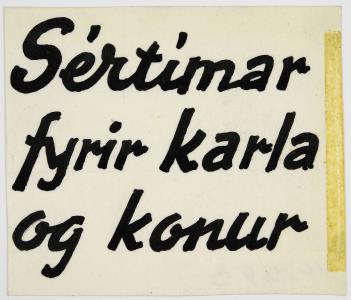 Sértímar
fyrir karla
og konur